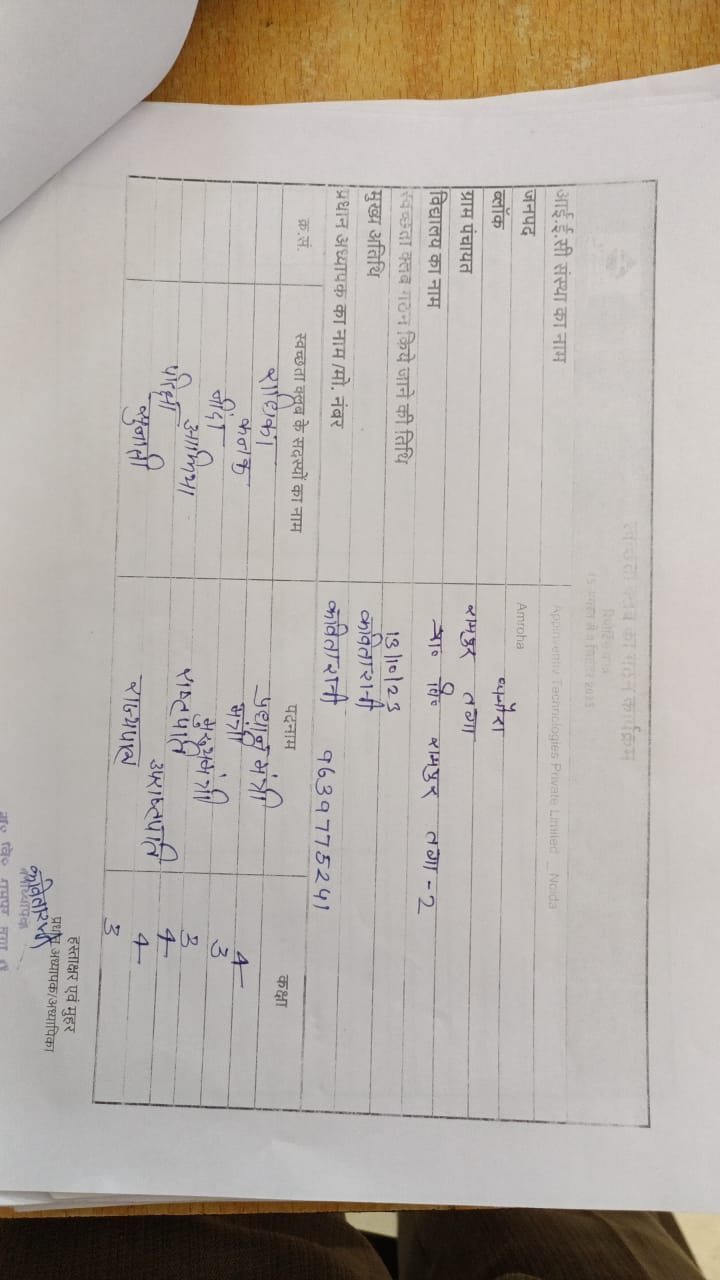 स्वच्छता क्लब का गठन कार्यक्रम
15 अगस्त से 2 2023
आई.ई.सी संस्था का नाम Appinventiv Technologies Private Limited _ Noida
जनपद Amroha
ब्लॉक
ग्राम पंचायत रामपुर तगा
विद्यालय का नाम प्रा० वि० रामपुर तगा - 2
स्वच्छता क्लब गठन किये जाने की तिथि 13/10/23
मुख्य अतिथि कविता रानी
प्रधान अध्यापक का नाम /मो. नंबर कविता रानी 9639775241
क्र.सं. स्वच्छता क्लब के सदस्यों का नाम पदनाम कक्षा
प्रधान मंत्री 4
कनक मंत्री 3
3
राष्ट्रपति 4
उपराष्ट्रपति 4
राज्यपाल 3
हस्ताक्षर एवं मुहर
प्रधान अध्यापक/अध्यापिका